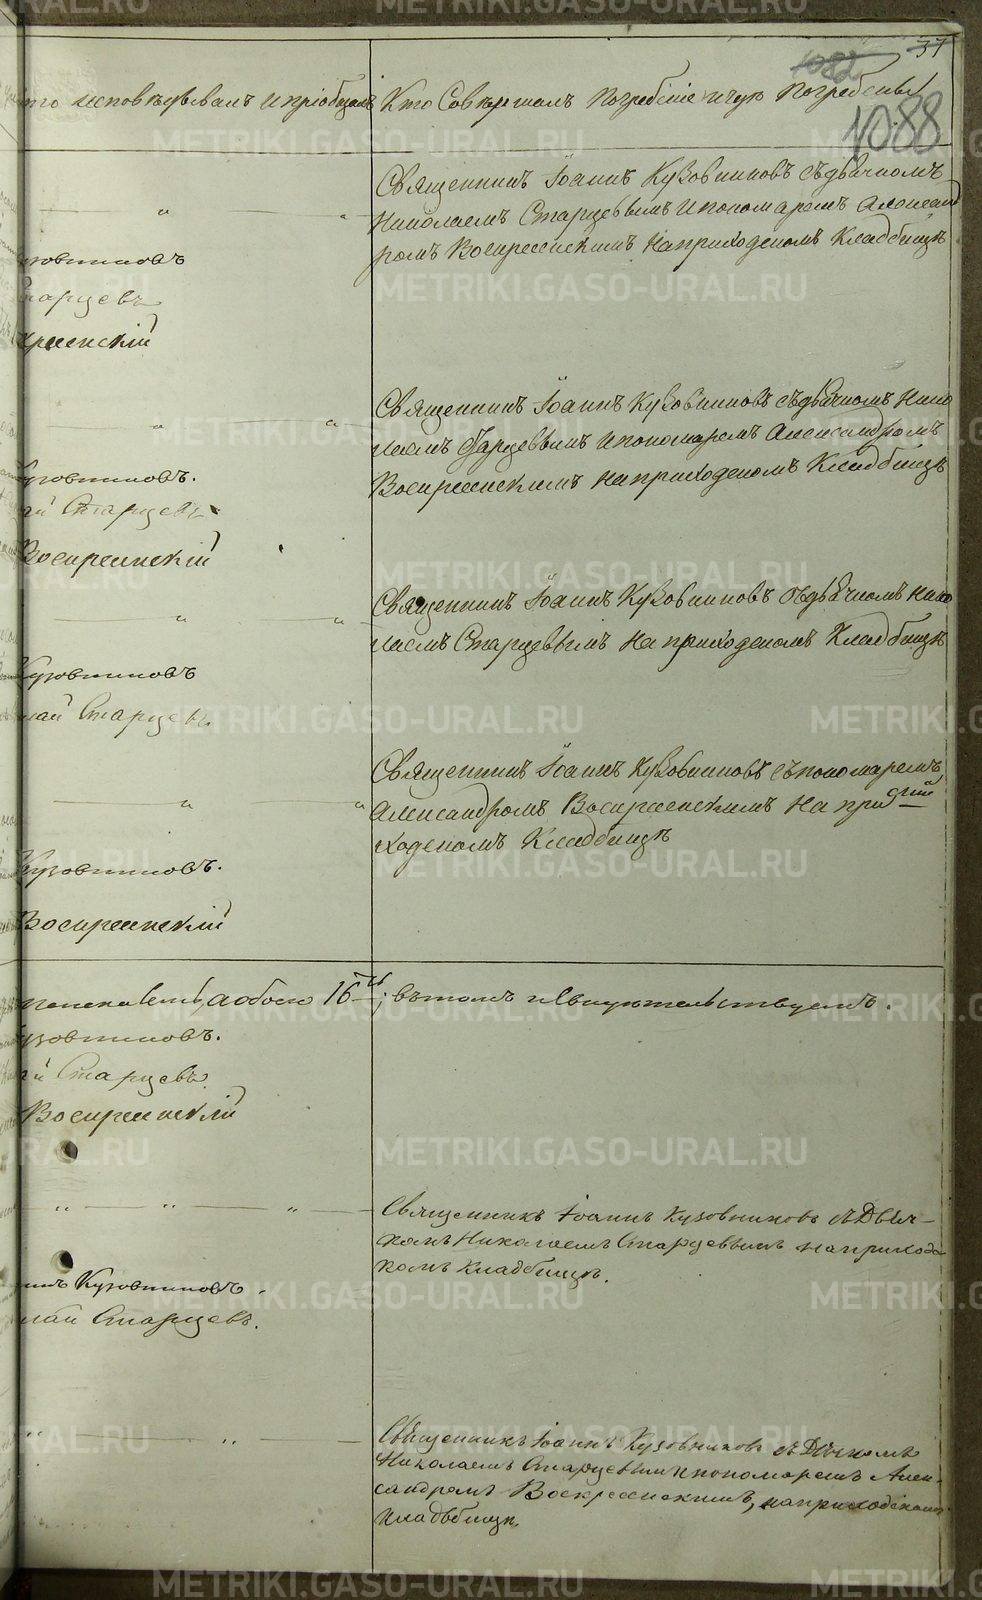 37
1082
1088
кто исповѣдывалъ и пріобщалъ
Кто Совершалъ Погребеніе и гдѣ Погребены
Священникъ Іоаннъ Кузовниковъ съ дьячкомъ
Николаемъ Старцевымъ и пономаремъ Александ
ромъ Воскресенскимъ на приходскомъ Кладбищѣ
узовниковъ
Старцевъ
кресенскій
Священникъ Іоаннъ Кузовниковъ съ дьячкомъ Нико
лаемъ Старцевымъ и пономаремъ Александромъ
Воскресенскимъ на приходскомъ Кладбищѣ
Кузовниковъ.
ай Старцевъ
Воскресенскій
Священникъ Іоаннъ Кузовниковъ съ дьячкомъ Нико
лаемъ Старцевымъ на приходскомъ Кладбищѣ
Кузовниковъ
лай Старцевъ.
Священникъ Іоаннъ Кузовниковъ съ пономаремъ
Александромъ Воскресенскимъ на при
ходскомъ Кладбищѣ
Кузовниковъ.
Воскресенскій
а обоего 16; въ томъ и свидѣтельствуемъ.
узовниковъ.
й Старцевъ
Воскресенскій
Священникъ Іоаннъ Кузовниковъ съ Дьяч-
комъ Николаемъ Старцевымъ на приходс
комъ кладбищѣ.
ннъ Кузовниковъ.
лай Старцевъ.
Священникъ Іоаннъ Кузовниковъ съ Дьячкомъ
Николаемъ Старцевымъ и пономаремъ Алек-
сандромъ Воскресенскимъ, на приходскомъ
кладбищѣ.
METRIKI.GASO-URAL.RU